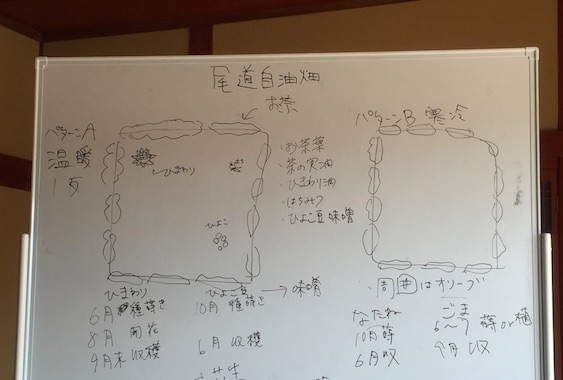 尾道自油畑
お茶
パターンA
温暖
1反
ひまわり
ひよこ
・お茶葉
・茶の実油
・ひまわり油
・はちみつ
・ひよこ豆味噌
ひまわり
6月 種蒔き
8月 開花
9月末 収穫
ひよこ豆 → 味噌
10月 種蒔き
6月 収穫
パターンB 寒冷
・周囲はオリーブ
なたね
10月蒔
6月収
ごま
6〜7 蒔or植
9月 収